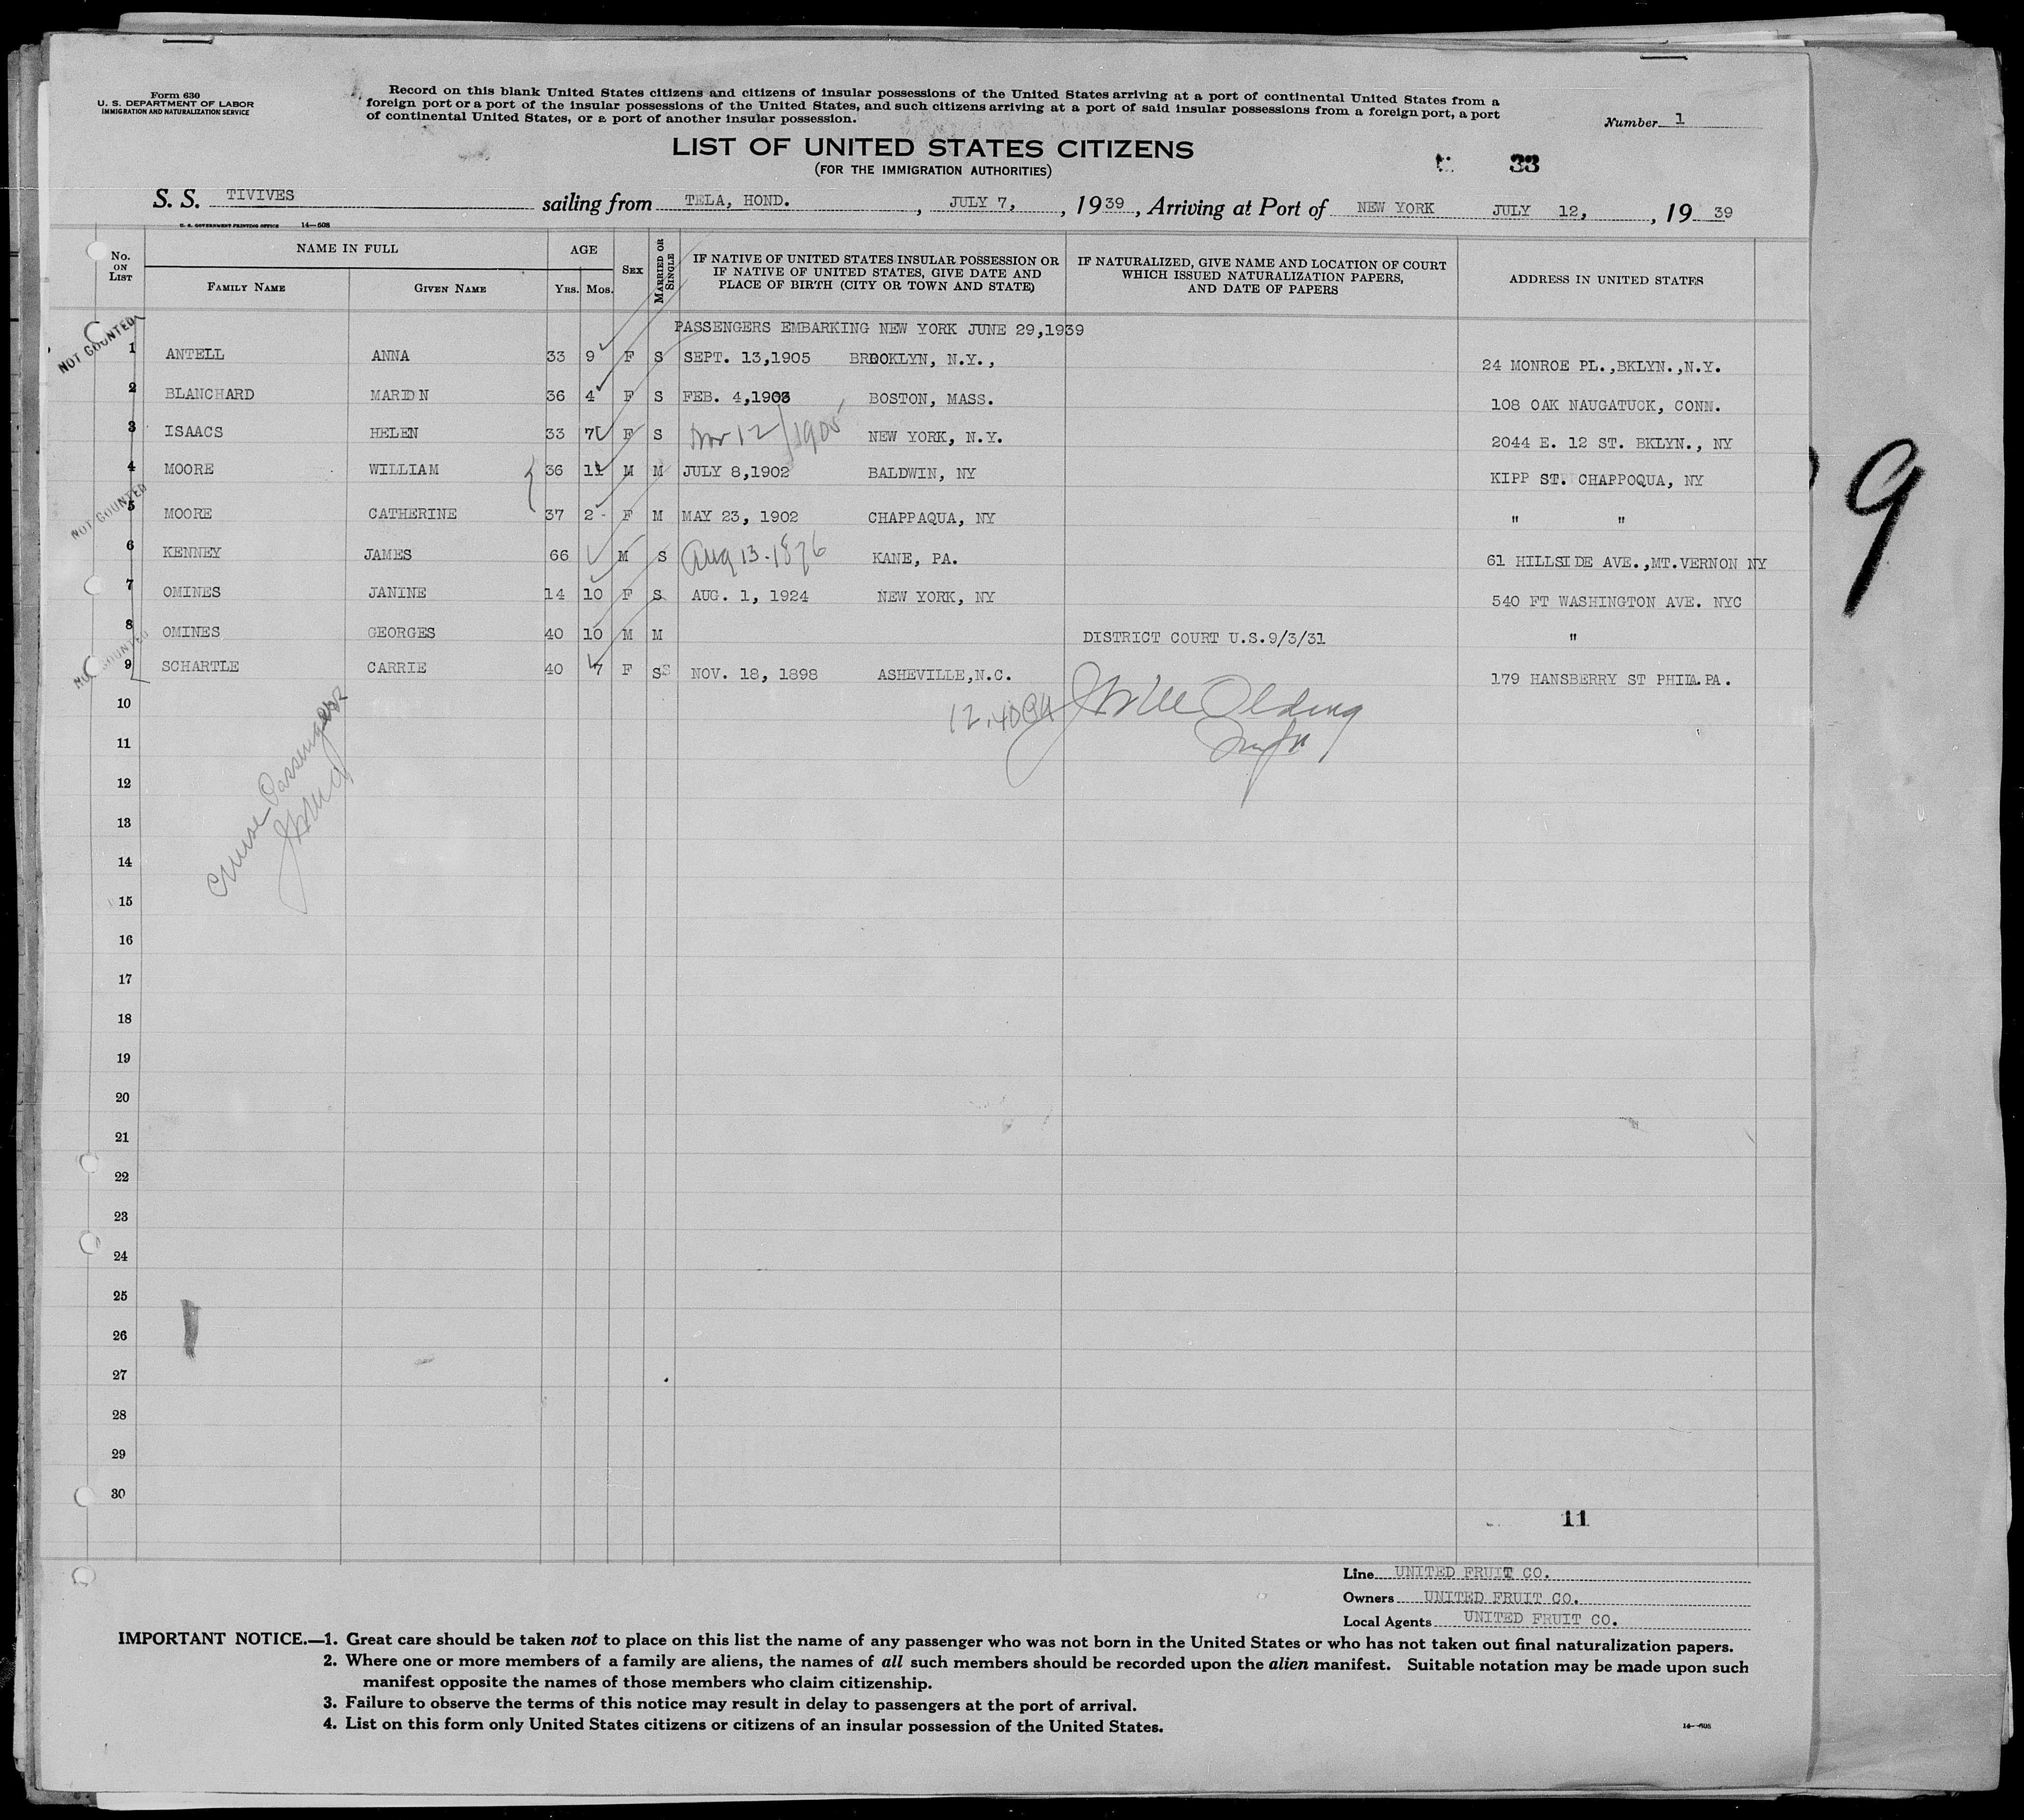 Form 630
U. S. DEPARTMENT OF LABOR
IMMIGRATION AND NATURALIZATION SERVICE
Record on this blank United States citizens and citizens of insular possessions of the United States arriving at a port of continental United States from a
foreign port or a port of the insular possessions of the United States, and such citizens arriving at a port of said insular possessions from a foreign port, a port
of continental United States, or a port of another insular possession.
Number 1
LIST OF UNITED STATES CITIZENS
(FOR THE IMMIGRATION AUTHORITIES)
33
S. S. TIVIVES sailing from TELA, HOND. , JULY 7, , 1939 , Arriving at Port of NEW YORK JULY 12, , 19 39
U. S. GOVERNMENT PRINTING OFFICE 14—608
No. ON LIST
NAME IN FULL
FAMILY NAME GIVEN NAME
AGE
YRS. MOS.
SEX
MARRIED OR SINGLE
IF NATIVE OF UNITED STATES INSULAR POSSESSION OR
IF NATIVE OF UNITED STATES, GIVE DATE AND
PLACE OF BIRTH (CITY OR TOWN AND STATE)
IF NATURALIZED, GIVE NAME AND LOCATION OF COURT
WHICH ISSUED NATURALIZATION PAPERS,
AND DATE OF PAPERS
ADDRESS IN UNITED STATES
PASSENGERS EMBARKING NEW YORK JUNE 29,1939
NOT COUNTED
1 ANTELL ANNA 33 9 F S SEPT. 13,1905 BROOKLYN, N.Y., 24 MONROE PL.,BKLYN.,N.Y.
2 BLANCHARD MARION 36 4 F S FEB. 4,1903 BOSTON, MASS. 108 OAK NAUGATUCK, CONN.
3 ISAACS HELEN 33 7 F S 12/1905 NEW YORK, N.Y. 2044 E. 12 ST. BKLYN., NY
4 MOORE WILLIAM 36 11 M M JULY 8,1902 BALDWIN, NY KIPP ST. CHAPPOQUA, NY
NOT COUNTED
5 MOORE CATHERINE 37 2 - F M MAY 23, 1902 CHAPPAQUA, NY " "
6 KENNEY JAMES 66 M S Aug 13-1876 KANE, PA. 61 HILLSIDE AVE.,MT.VERNON NY
7 OMINES JANINE 14 10 F S AUG. 1, 1924 NEW YORK, NY 540 FT WASHINGTON AVE. NYC
8 OMINES GEORGES 40 10 M M DISTRICT COURT U.S.9/3/31 "
NOT COUNTED
9 SCHARTLE CARRIE 40 7 F S NOV. 18, 1898 ASHEVILLE,N.C. 179 HANSBERRY ST PHILA.PA.
10
11
12
13
14
15
16
17
18
19
20
21
22
23
24
25
26
27
28
29
30
Cruise Passengers
9
11
Line UNITED FRUIT CO.
Owners UNITED FRUIT CO.
Local Agents UNITED FRUIT CO.
IMPORTANT NOTICE.—1. Great care should be taken not to place on this list the name of any passenger who was not born in the United States or who has not taken out final naturalization papers.
2. Where one or more members of a family are aliens, the names of all such members should be recorded upon the alien manifest. Suitable notation may be made upon such
manifest opposite the names of those members who claim citizenship.
3. Failure to observe the terms of this notice may result in delay to passengers at the port of arrival.
4. List on this form only United States citizens or citizens of an insular possession of the United States.
14—608